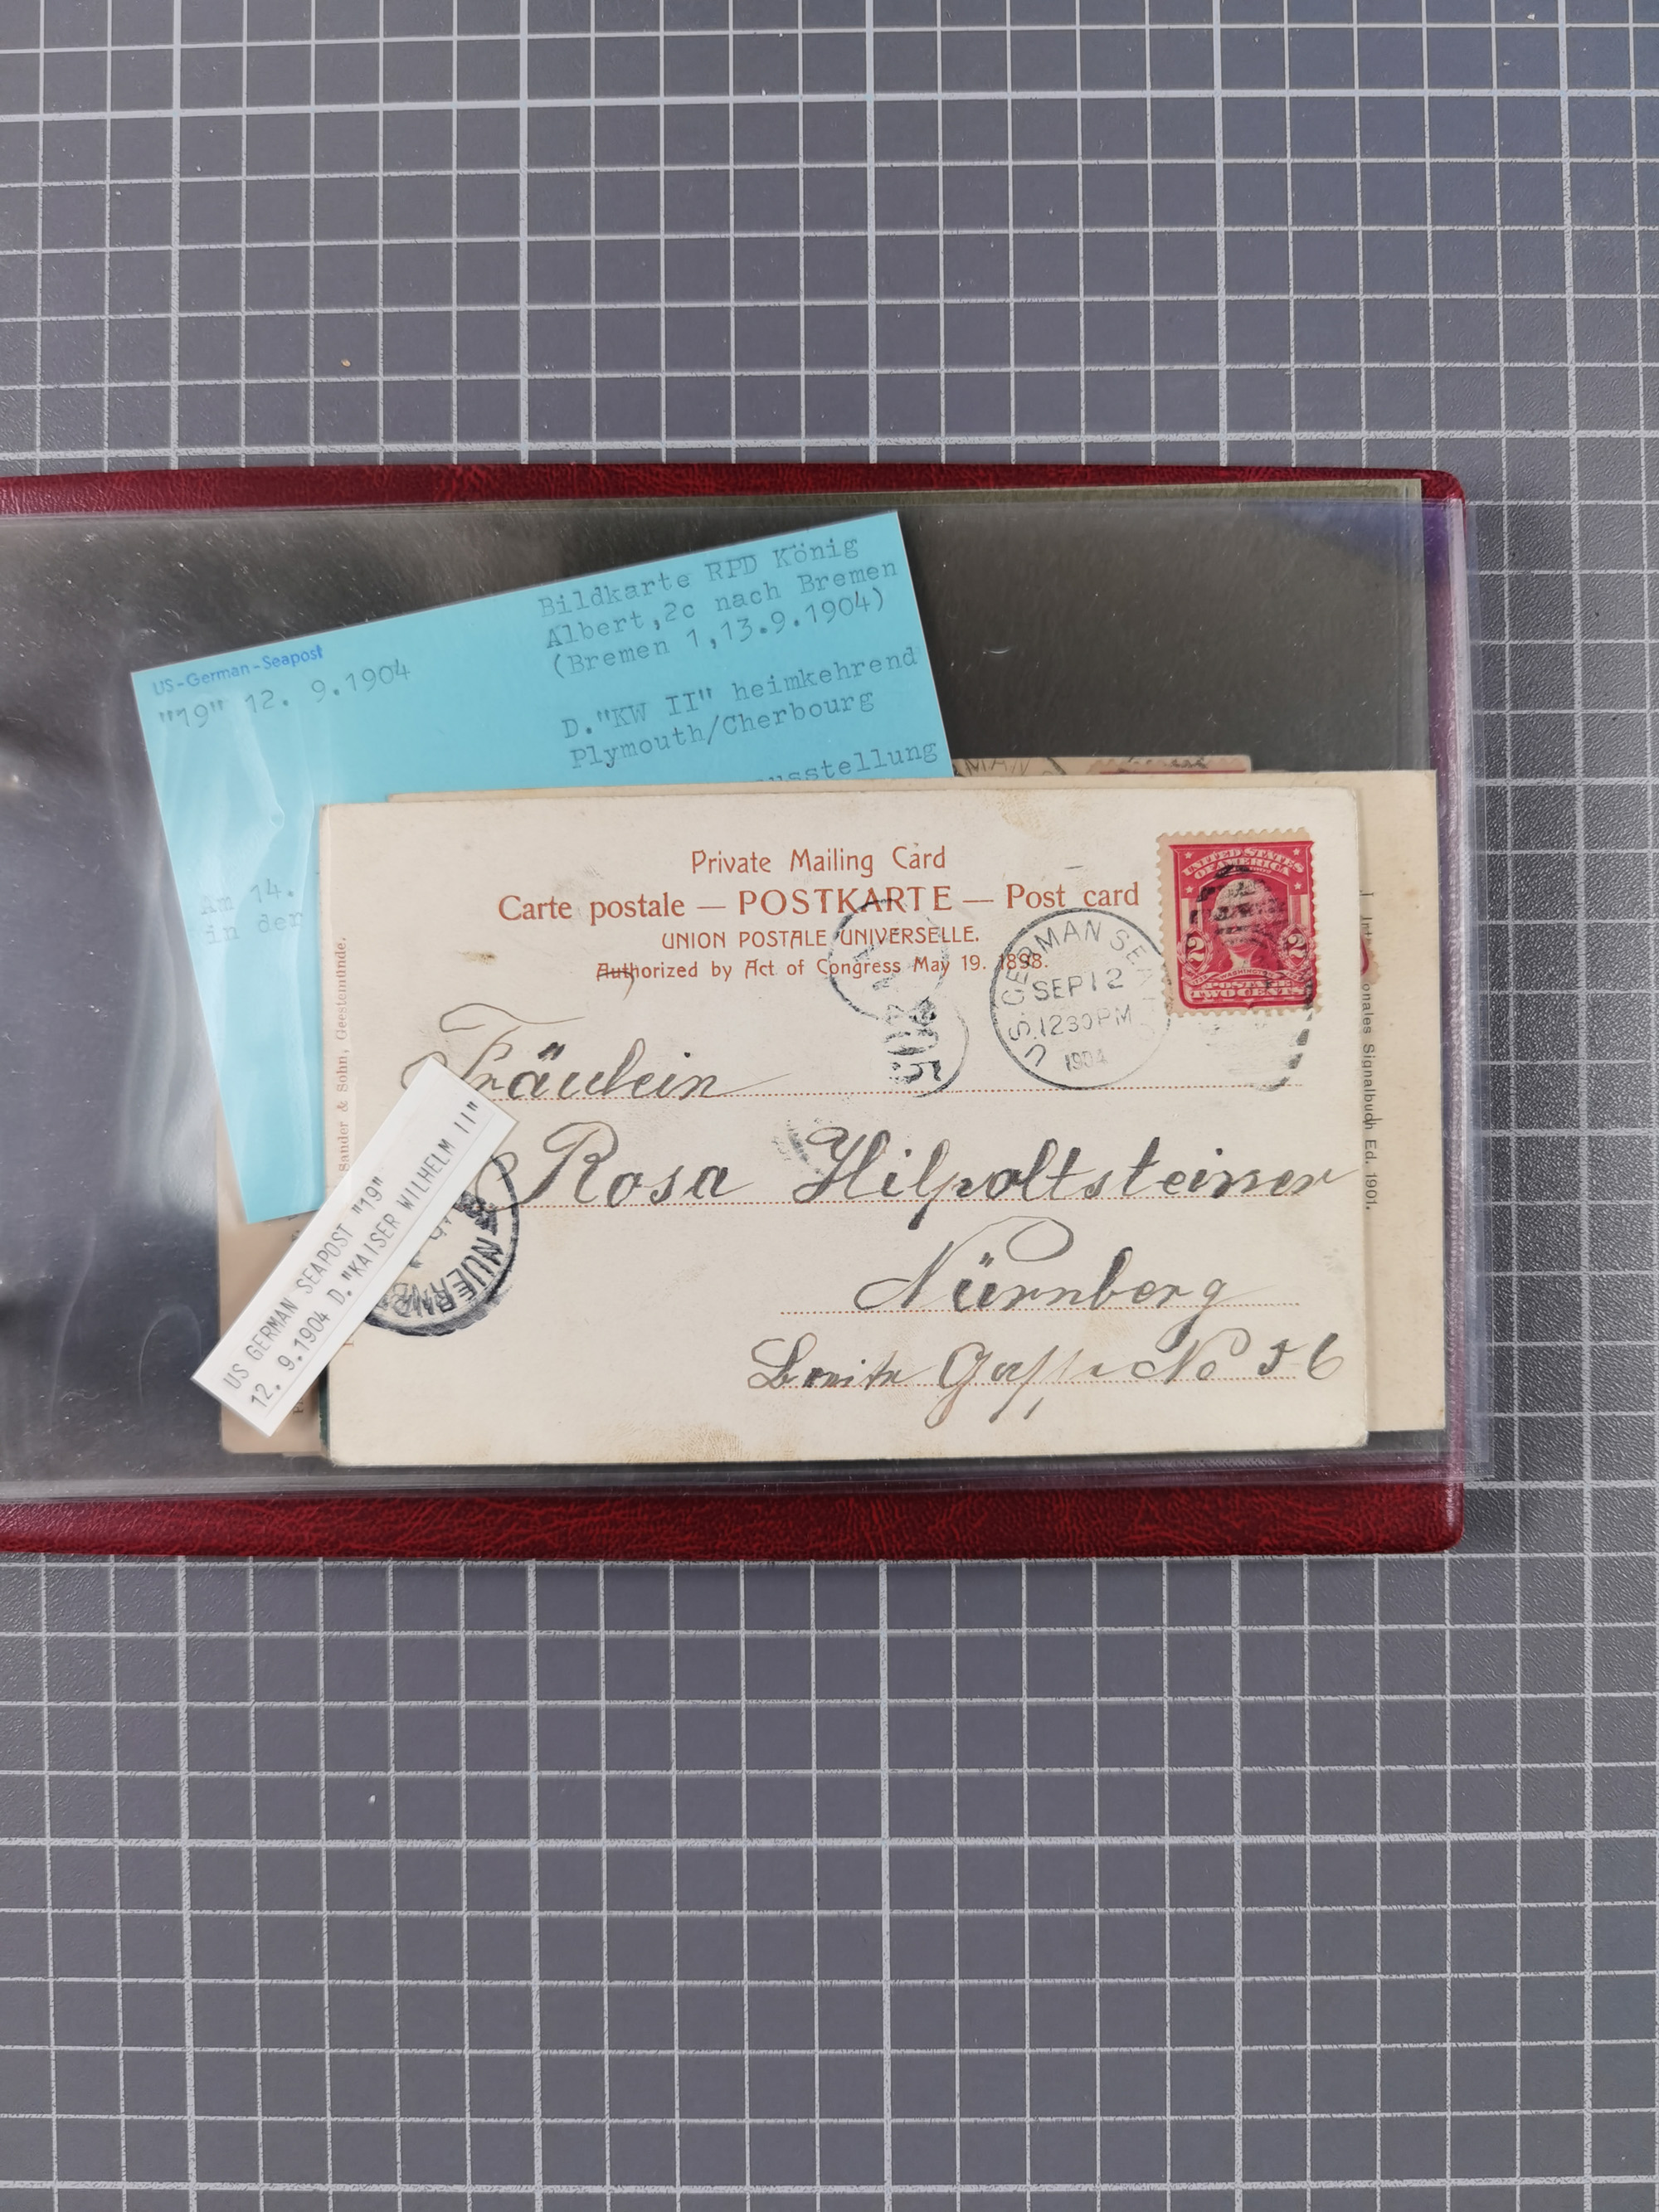 Bildkarte RPD König
Albert,2c nach Bremen
(Bremen 1,13.9.1904)
US-German-Seapost
"19" 12. 9.1904
D."KW II" heimkehrend
Plymouth/Cherbourg
Am 14.
in der
MAN
Private Mailing Card
Carte postale — POSTKARTE — Post card
UNION POSTALE UNIVERSELLE.
Authorized by Act of Congress May 19. 1898.
UNITED STATES
OF AMERICA
2 2
WASHINGTON
POSTAGE
TWO CENTS
U.S. GERMAN SEA
SEP 12
1230PM
1904
Fräulein
Rosa Hilpoltsteiner
Nürnberg
Breite Gasse No 56
Sander & Sohn, Geestemünde.
US GERMAN SEAPOST "19"
12. 9.1904 D."KAISER WILHELM II"
NUERNB
onales Signalbuch Ed. 1901.